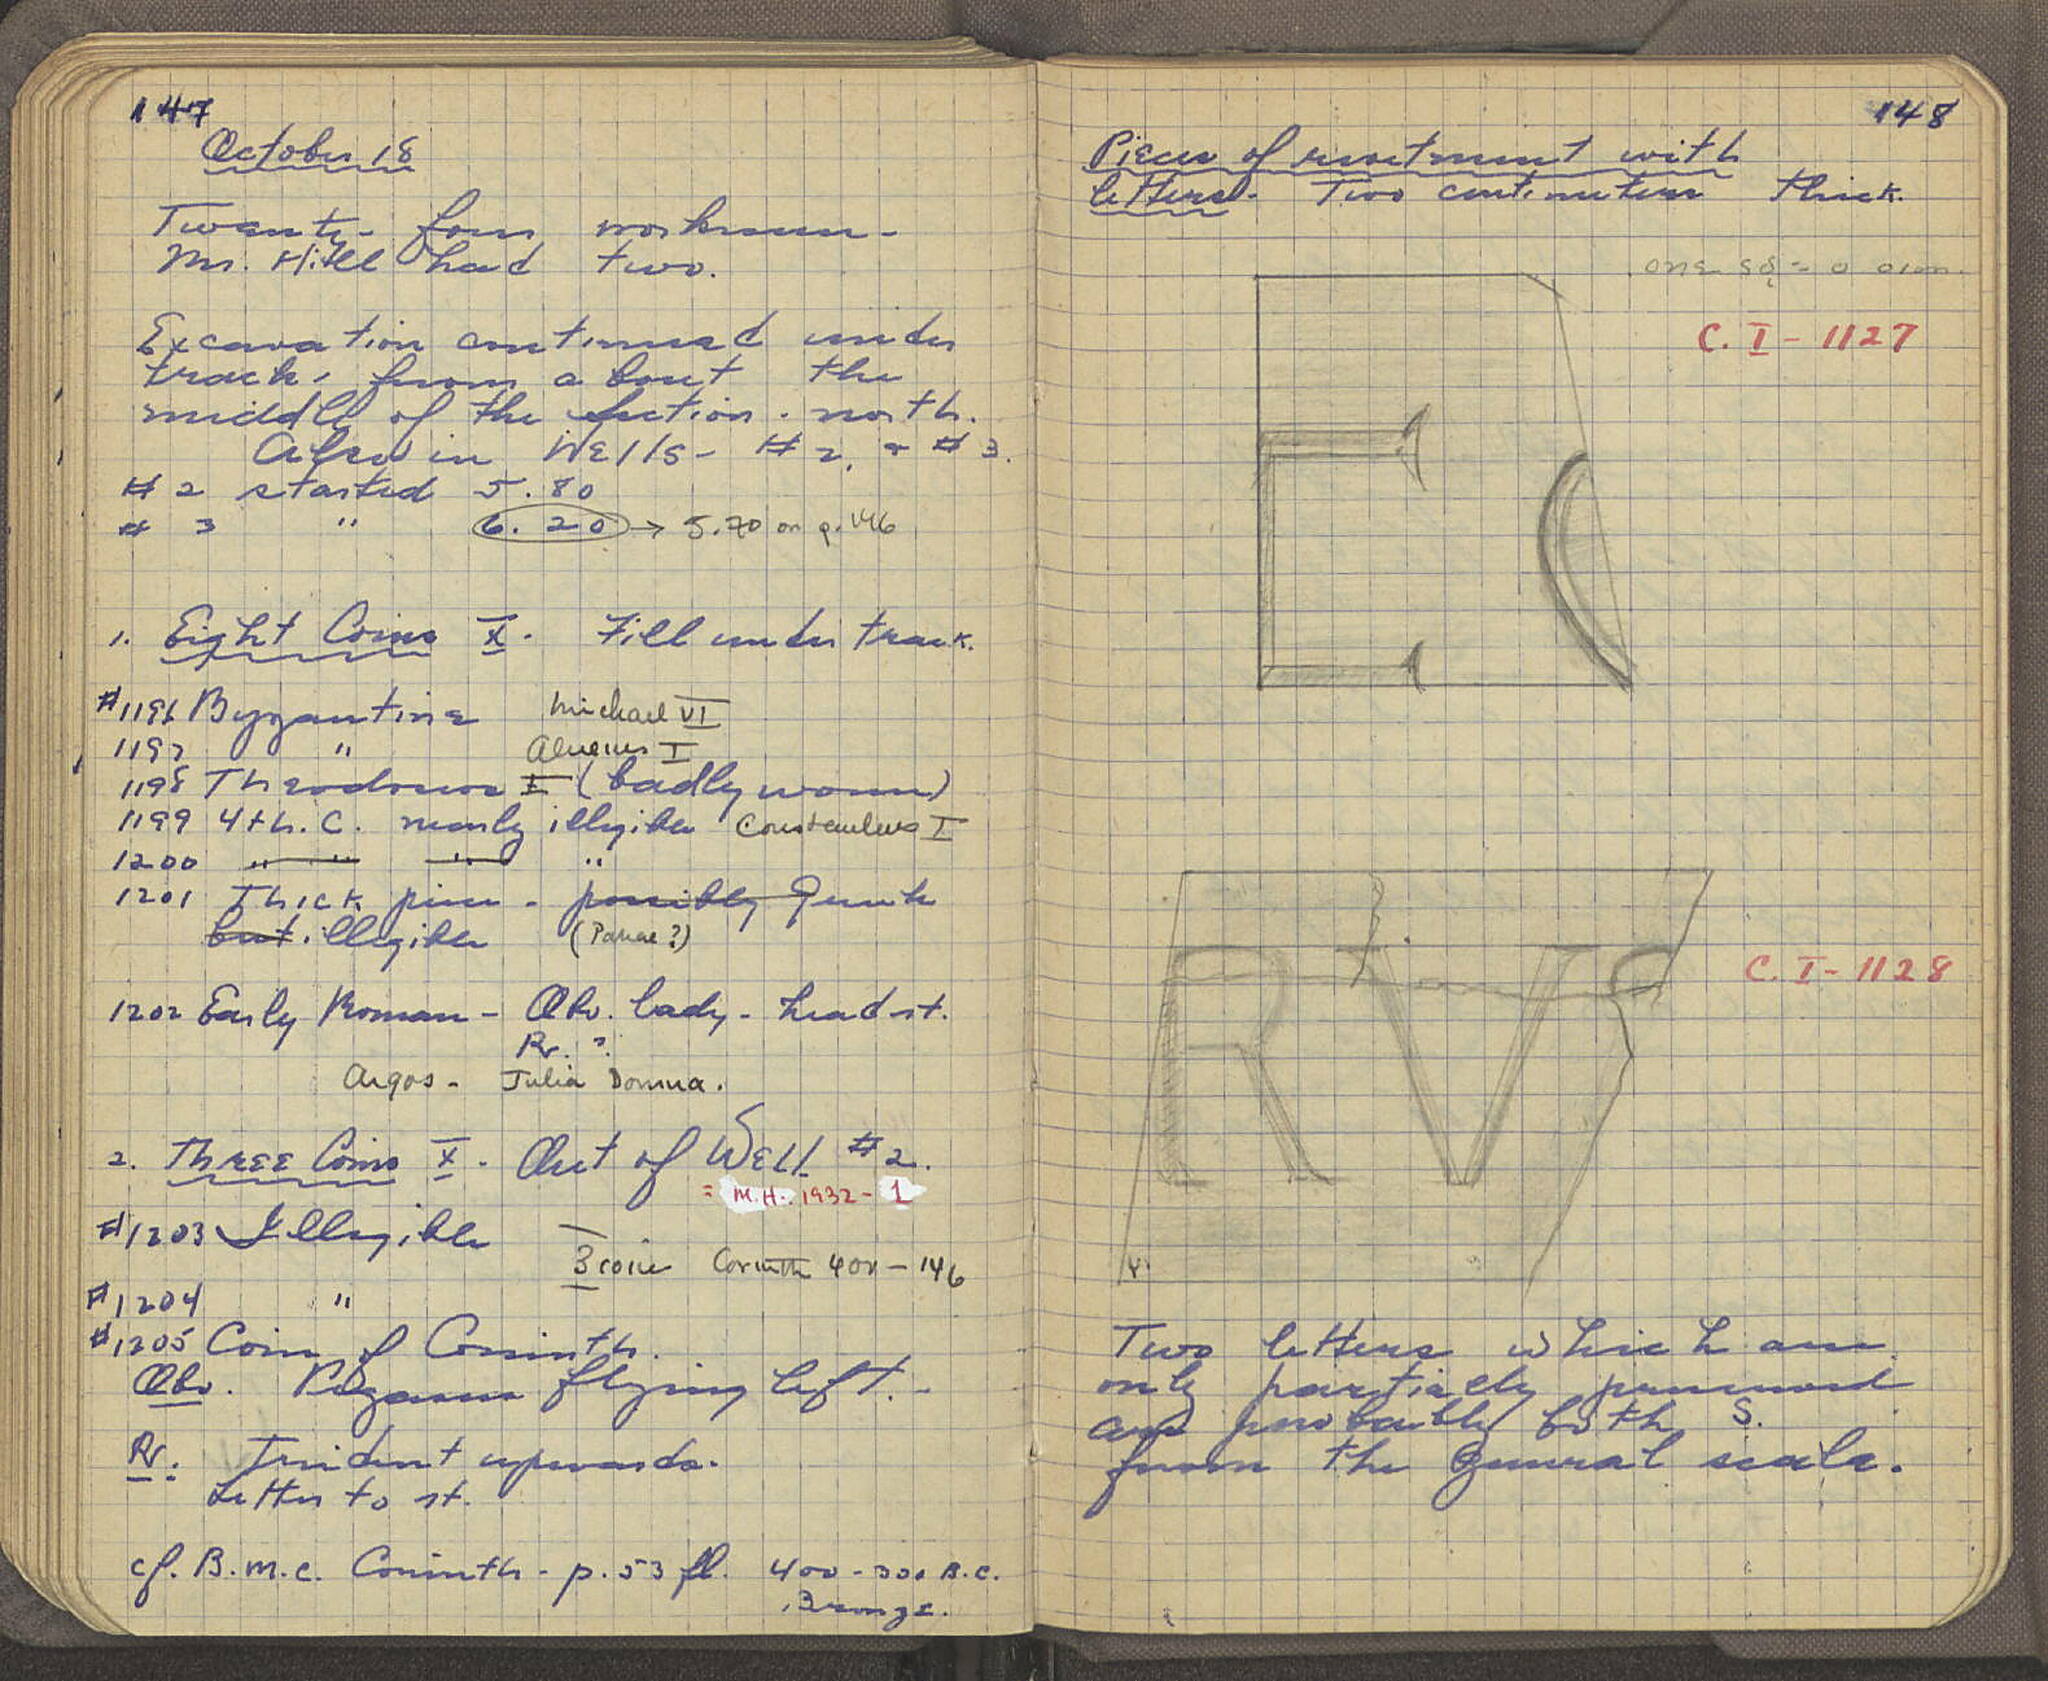 147
October 18
Twenty-four workmen-
Mr. Hill had two.
Excavation continued under
track, from about the
middle of the section. north.
Also in Wells- #2, & #3.
#2 started 5.80
#3 " 6.20 → 5.70 on p. 146
1. Eight Coins X. Fill under track.
#1196 Byzantine Michael VI
1197 " Alexius I
1198 Theodorus I (badly worn)
1199 4th. C. nearly illegible Constantius I
1200 " " " "
1201 Thick piece - possibly Greek
but illegible
1202 Early Roman - Obv. lady - head rt.
Rv. ?
Argos - Julia Domna.
2. Three Coins X. Out of Well #2.
= M.H. 1932-1
#1203 Illegible
3 coins Corinth 400-146
#1204 "
#1205 Coin of Corinth.
Obv. Pegasus flying left.-
Rv. Trident upwards.
Letter to rt.
cf. B.M.C. Corinth - p. 53 ff. 400-300 B.C.
Bronze.
148
Pieces of revetment with
letters. Two centimeters thick.
one sq = 0.01m.
C. I - 1127
C. I - 1128
RV
Two letters which are
only partially preserved
are probably both S.
from the general scale.